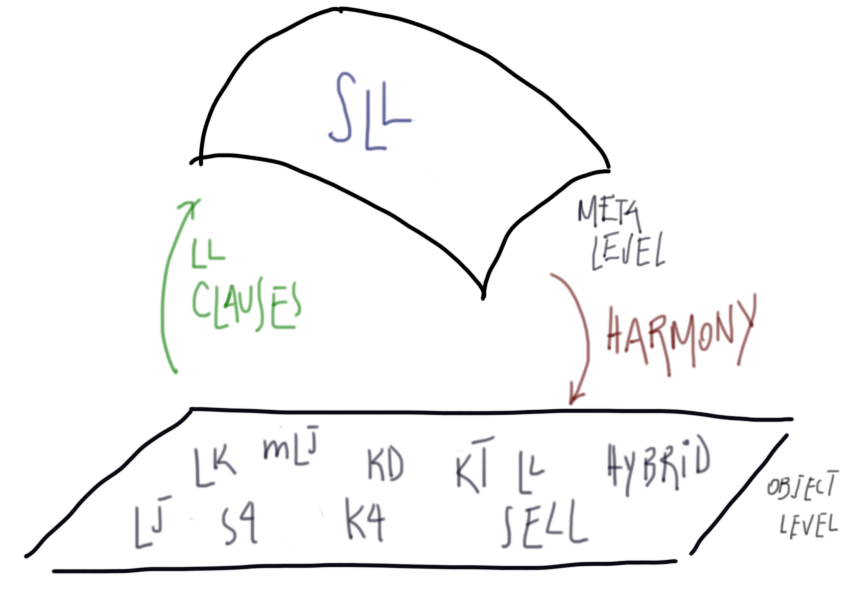 SLL
META
LEVEL
LL
CLAUSES
HARMONY
LK mLJ KD KT LL HYBRiD
LJ S4 K4 SELL
OBJECT
LEVEL